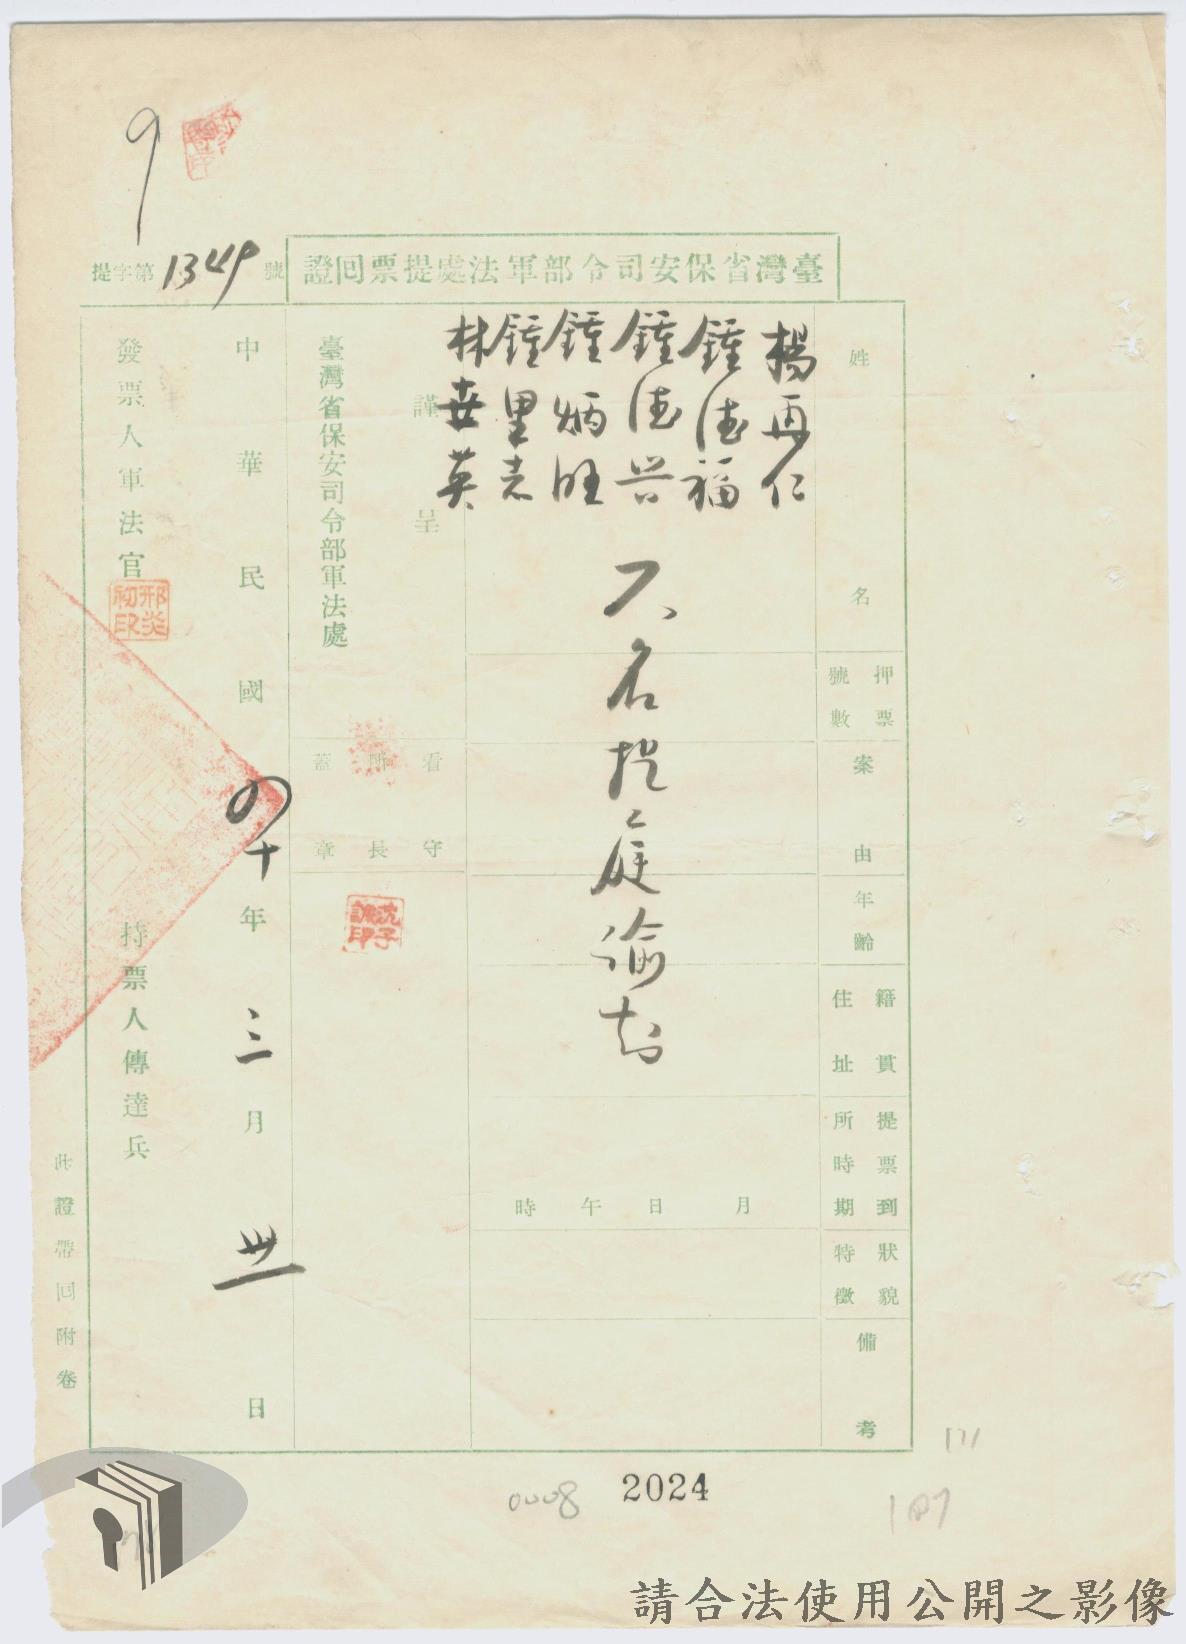 9
臺灣省保安司令部軍法處提票回證
提字第1349號
姓名
押票號數
案由
年齡
籍貫住址
提票到所時期
狀貌特徵
備考
楊再仁
鍾德福
鍾德兴
鍾炳旺
鍾里志
林英
六名提庭諭知
月 日 午 時
謹呈
臺灣省保安司令部軍法處
看守所長蓋章
沈子誠印
中華民國四十年三月卅一日
發票人軍法官
邢炎初印
持票人傳達兵
此證帶回附卷
0008
2024
171
187
請合法使用公開之影像